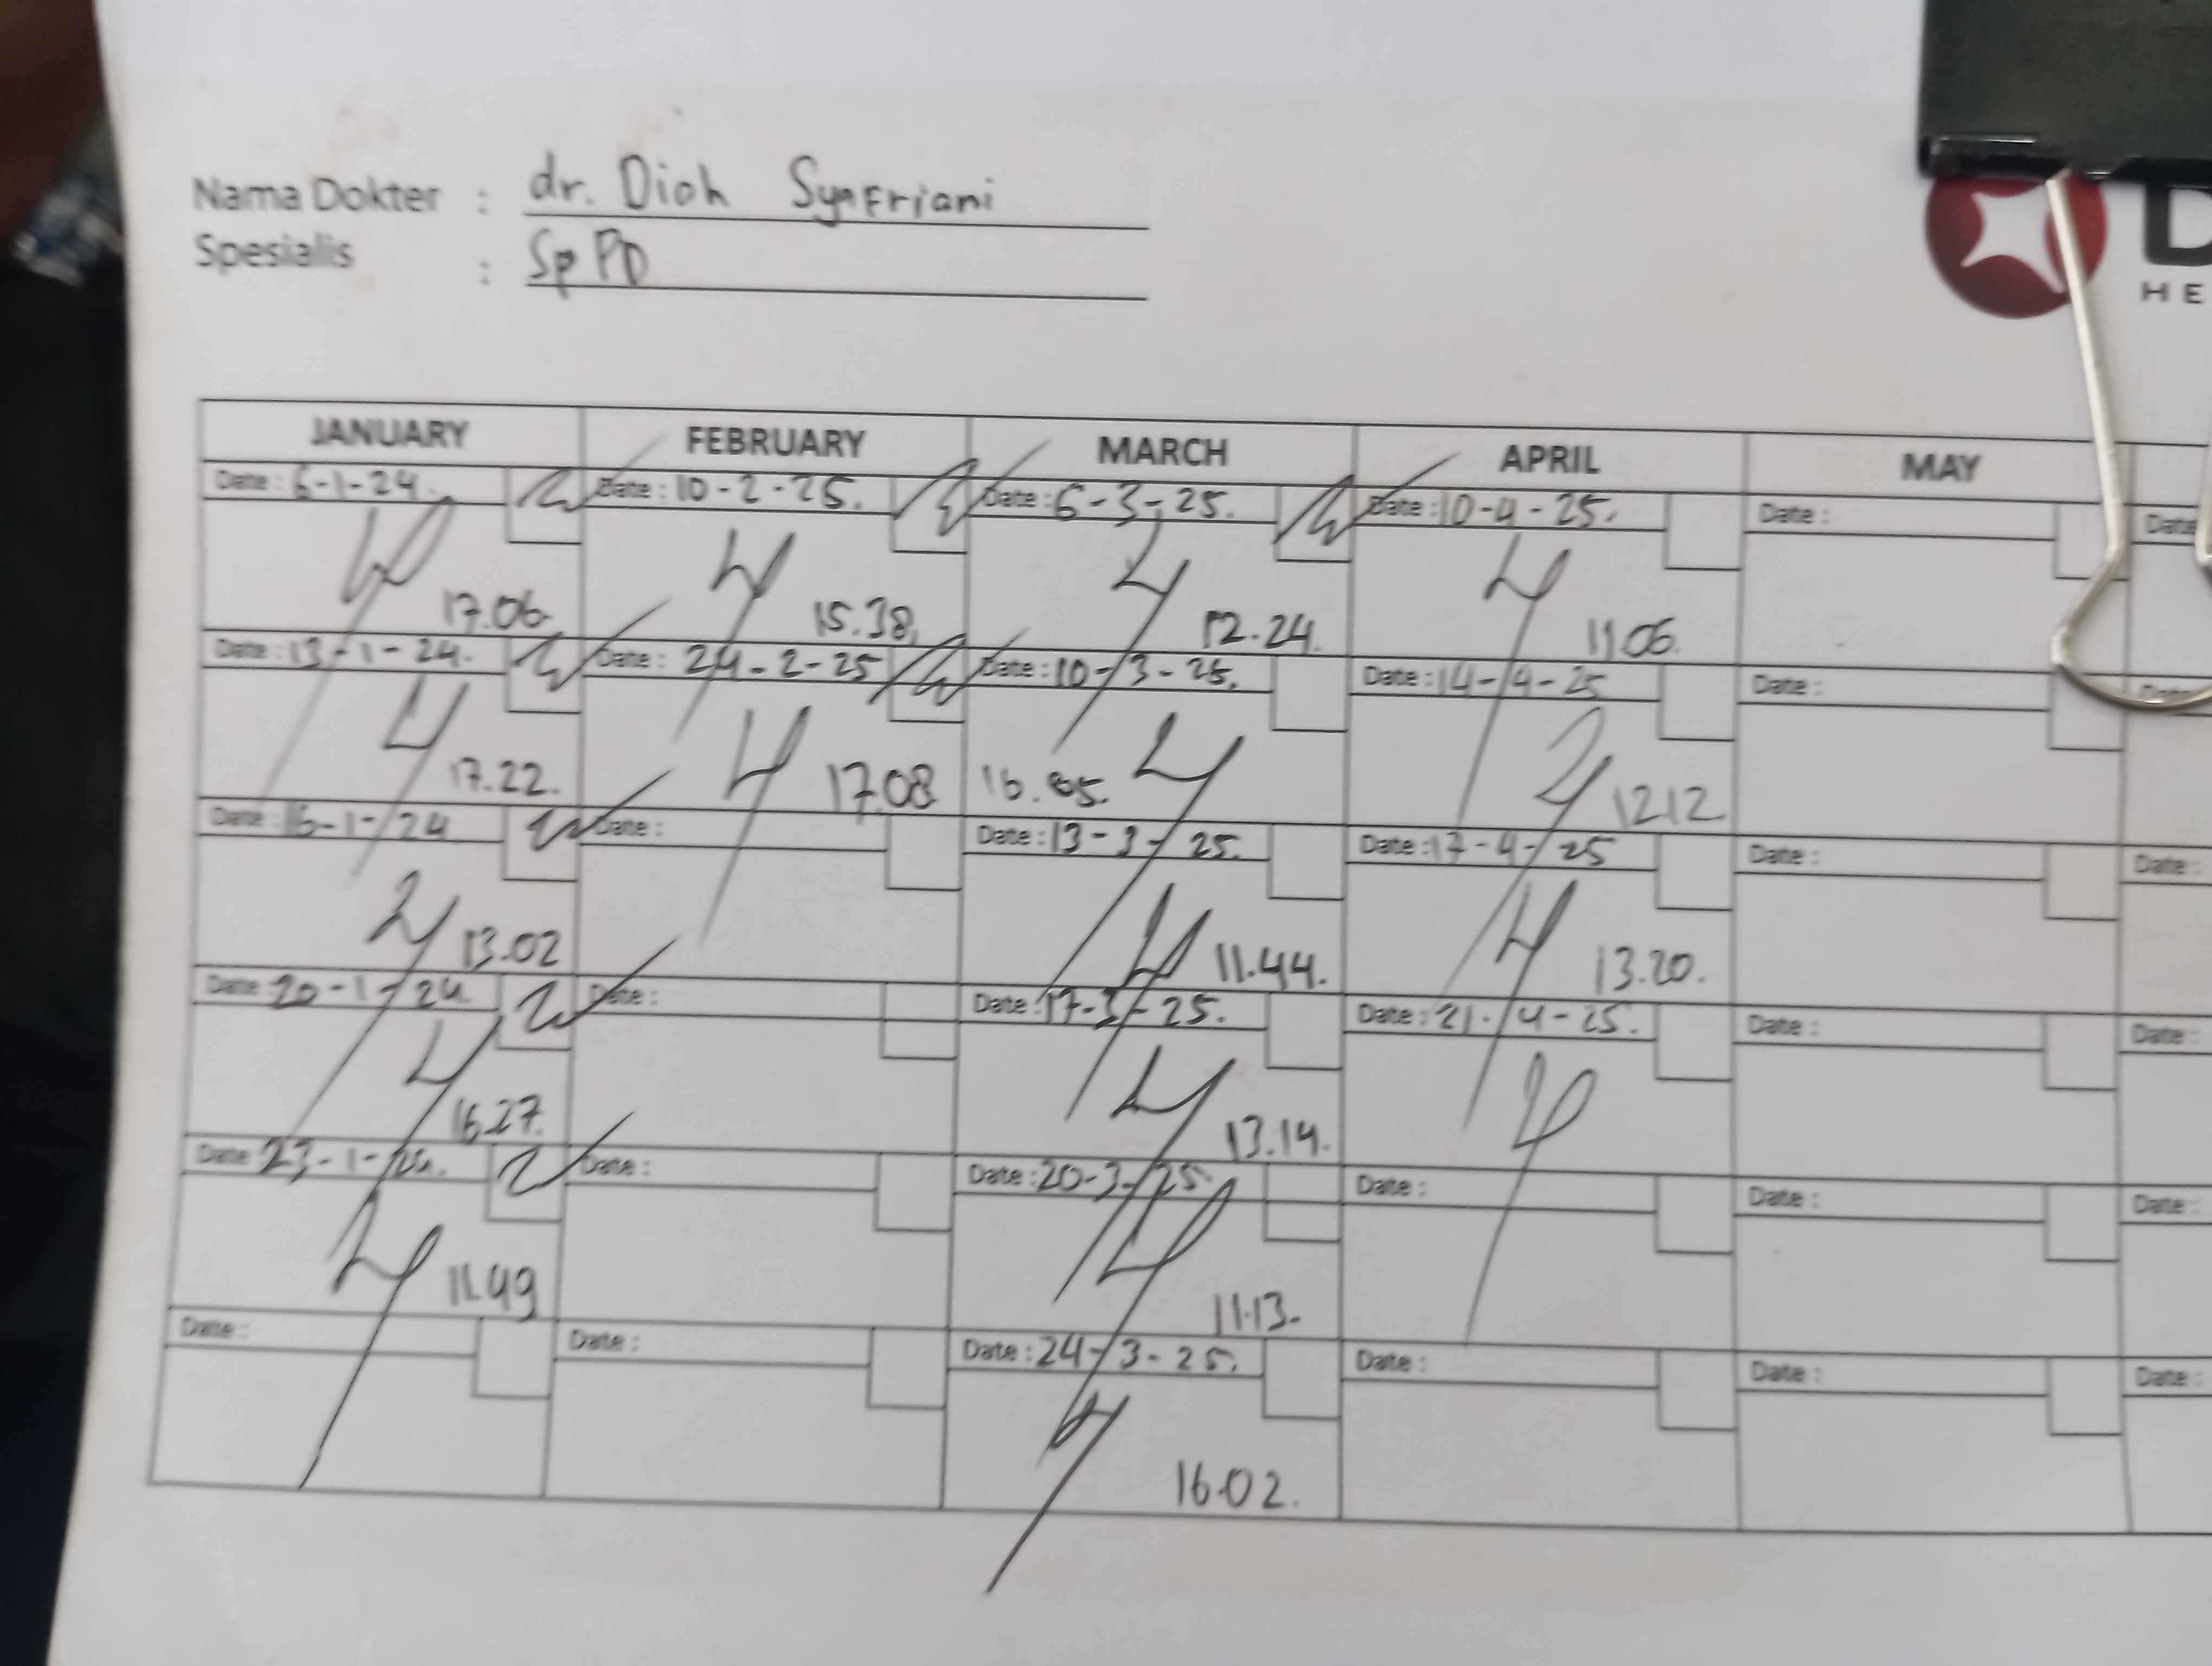 Nama Dokter : dr. Diah Syafriani
Spesialis : Sp PD
D
HE
JANUARY FEBRUARY MARCH APRIL MAY
Date : 6-1-24. Date : 10-2-25. Date : 6-3-25. Date : 10-4-25. Date : Date
17.06 15.38 12.24. 11.06.
Date : 13-1-24. Date : 24-2-25 Date : 10-3-25. Date : 14-4-25 Date : Date
17.22. 17.08 16. 12.12
Date : 16-1-24 Date : Date : 13-3-25. Date : 17-4-25 Date : Date :
13.02 11.44. 13.20.
Date : 20-1-24 Date : Date : 17-3-25. Date : 21-4-25. Date : Date :
16.27. 13.14.
Date : 23-1- Date : Date : 20-3-25. Date : Date : Date :
11.49 11.13.
Date : Date : Date : 24-3-25. Date : Date : Date :
16.02.